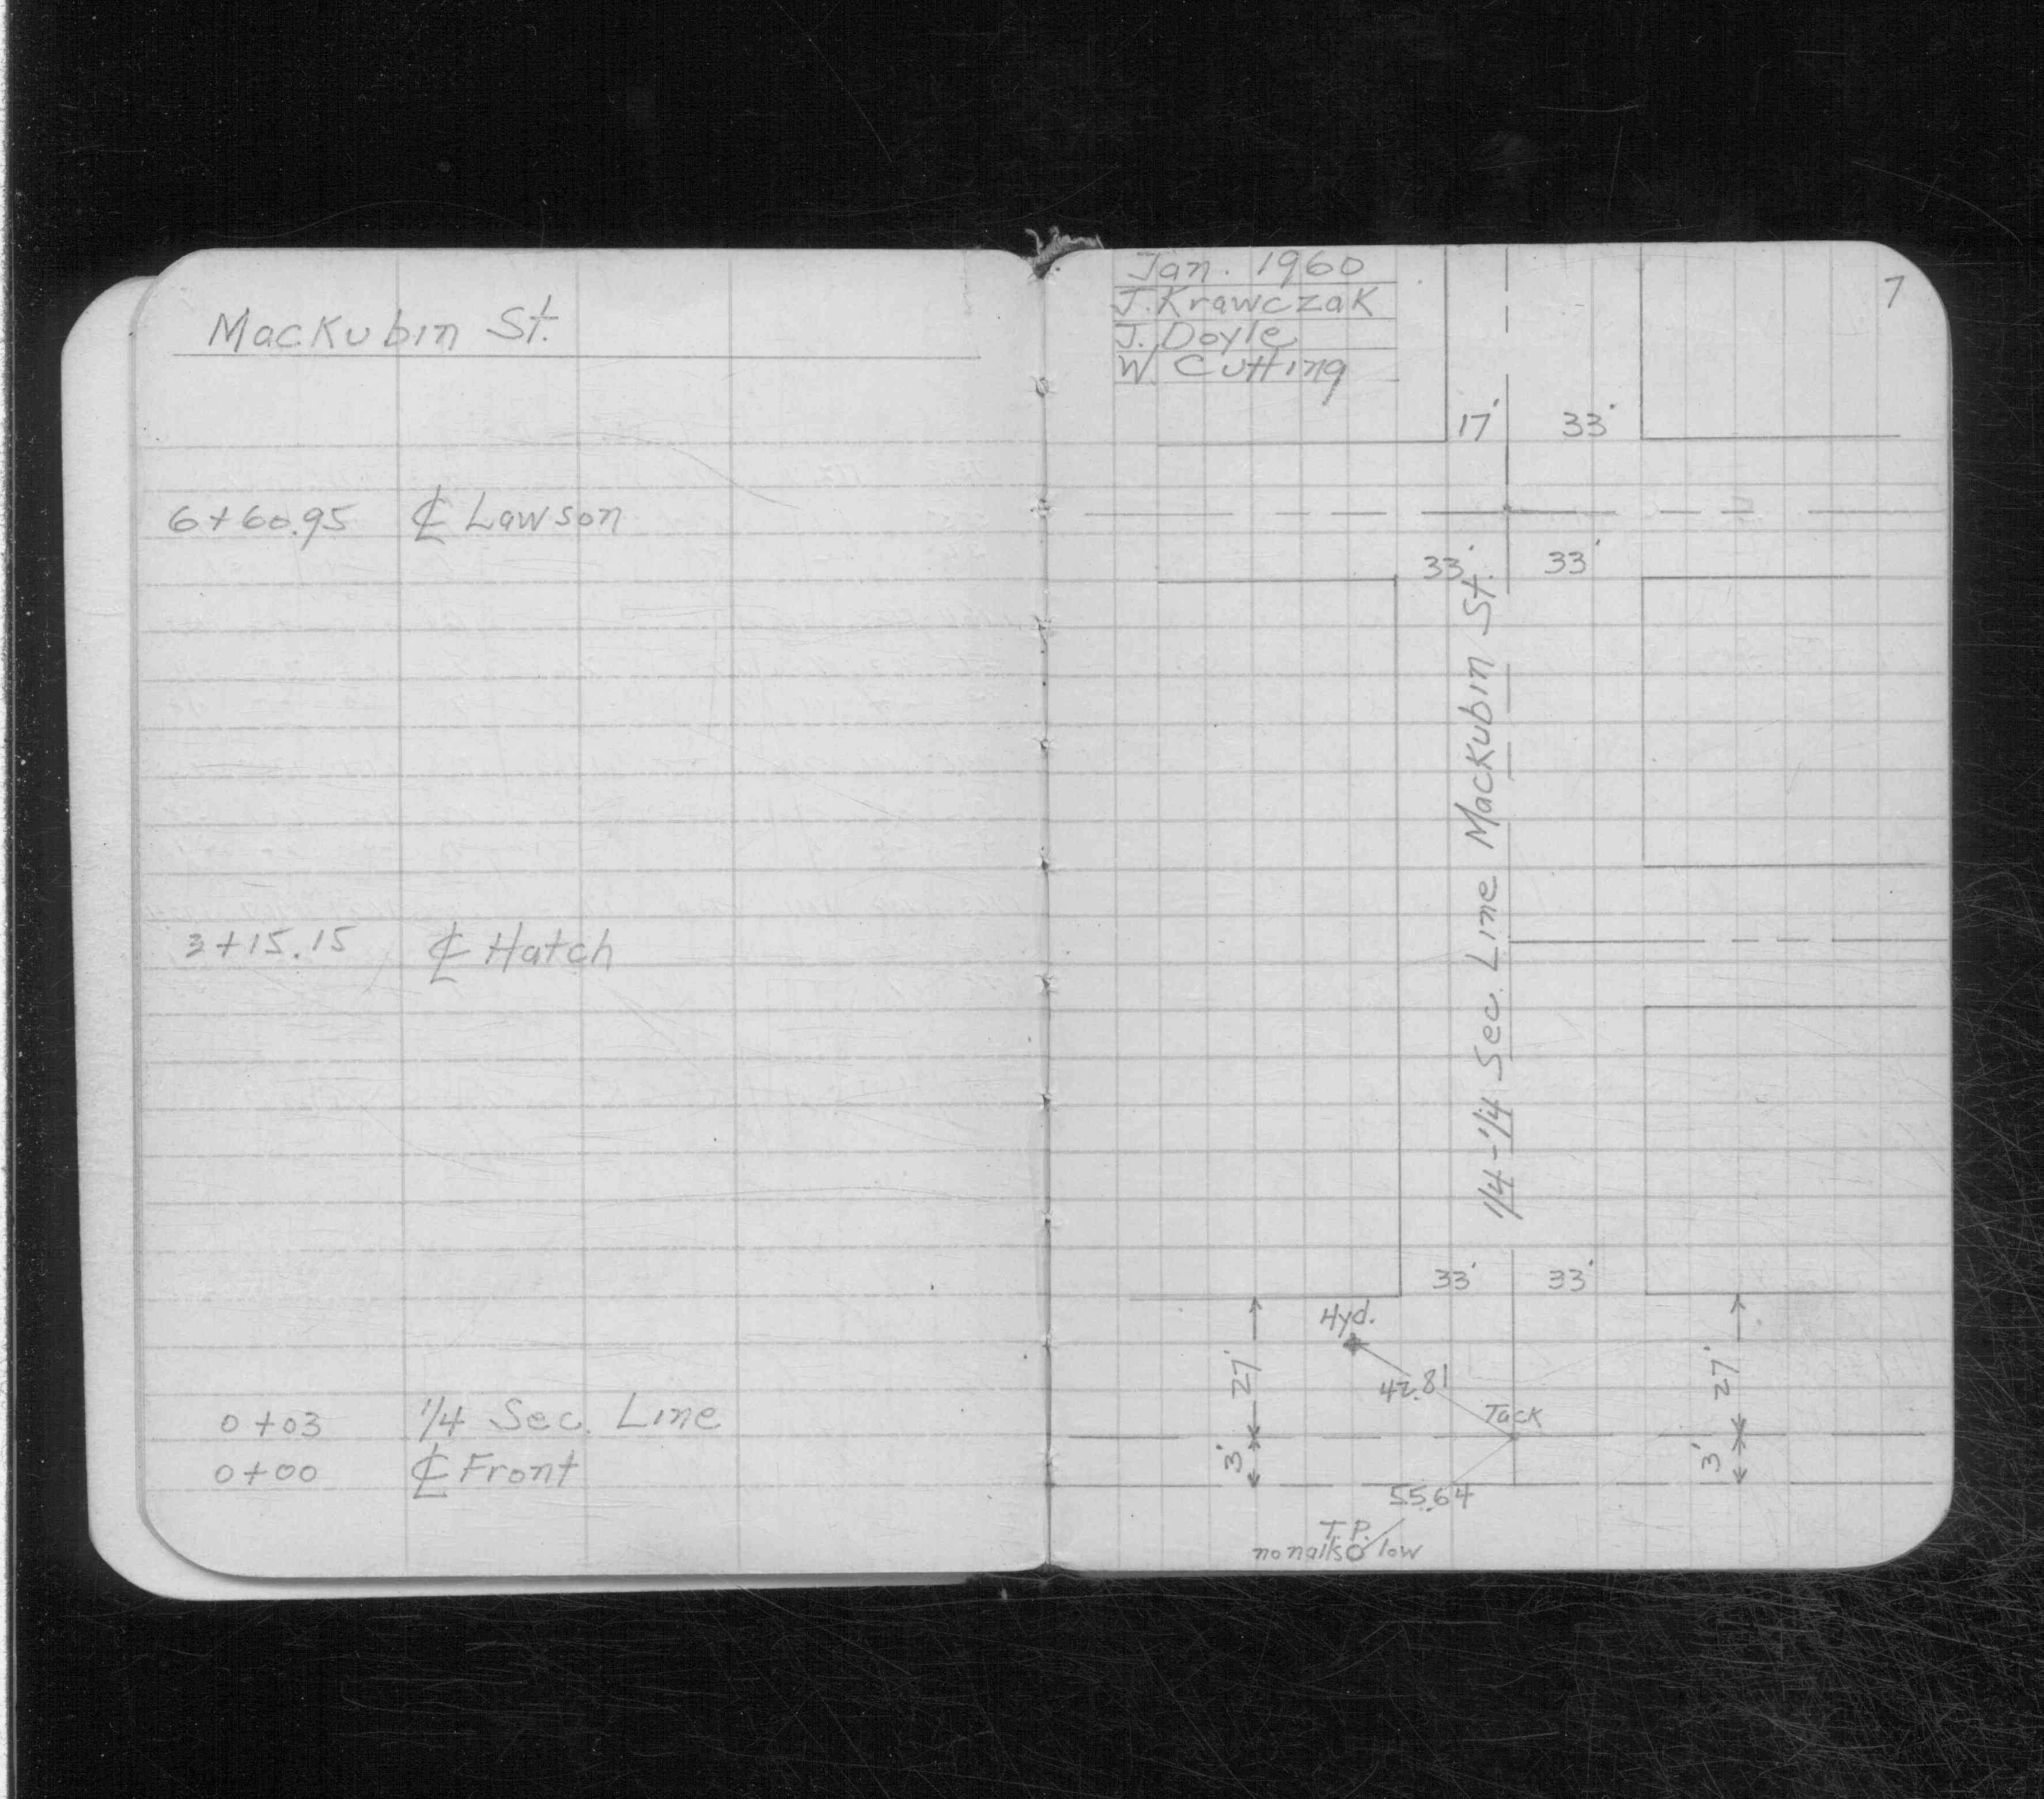 Mackubin St.
6+60.95 ℄ Lawson
3+15.15 ℄ Hatch
0+03 1/4 Sec. Line
0+00 ℄ Front
Jan. 1960
J. Krawczak
J. Doyle
W. Cutting
7
17' 33'
33' 33'
1/4-1/4 Sec. Line Mackubin St.
33' 33'
Hyd.
27' 42.81 27'
Tack
3' 3'
55.64
T.P.
no nails low